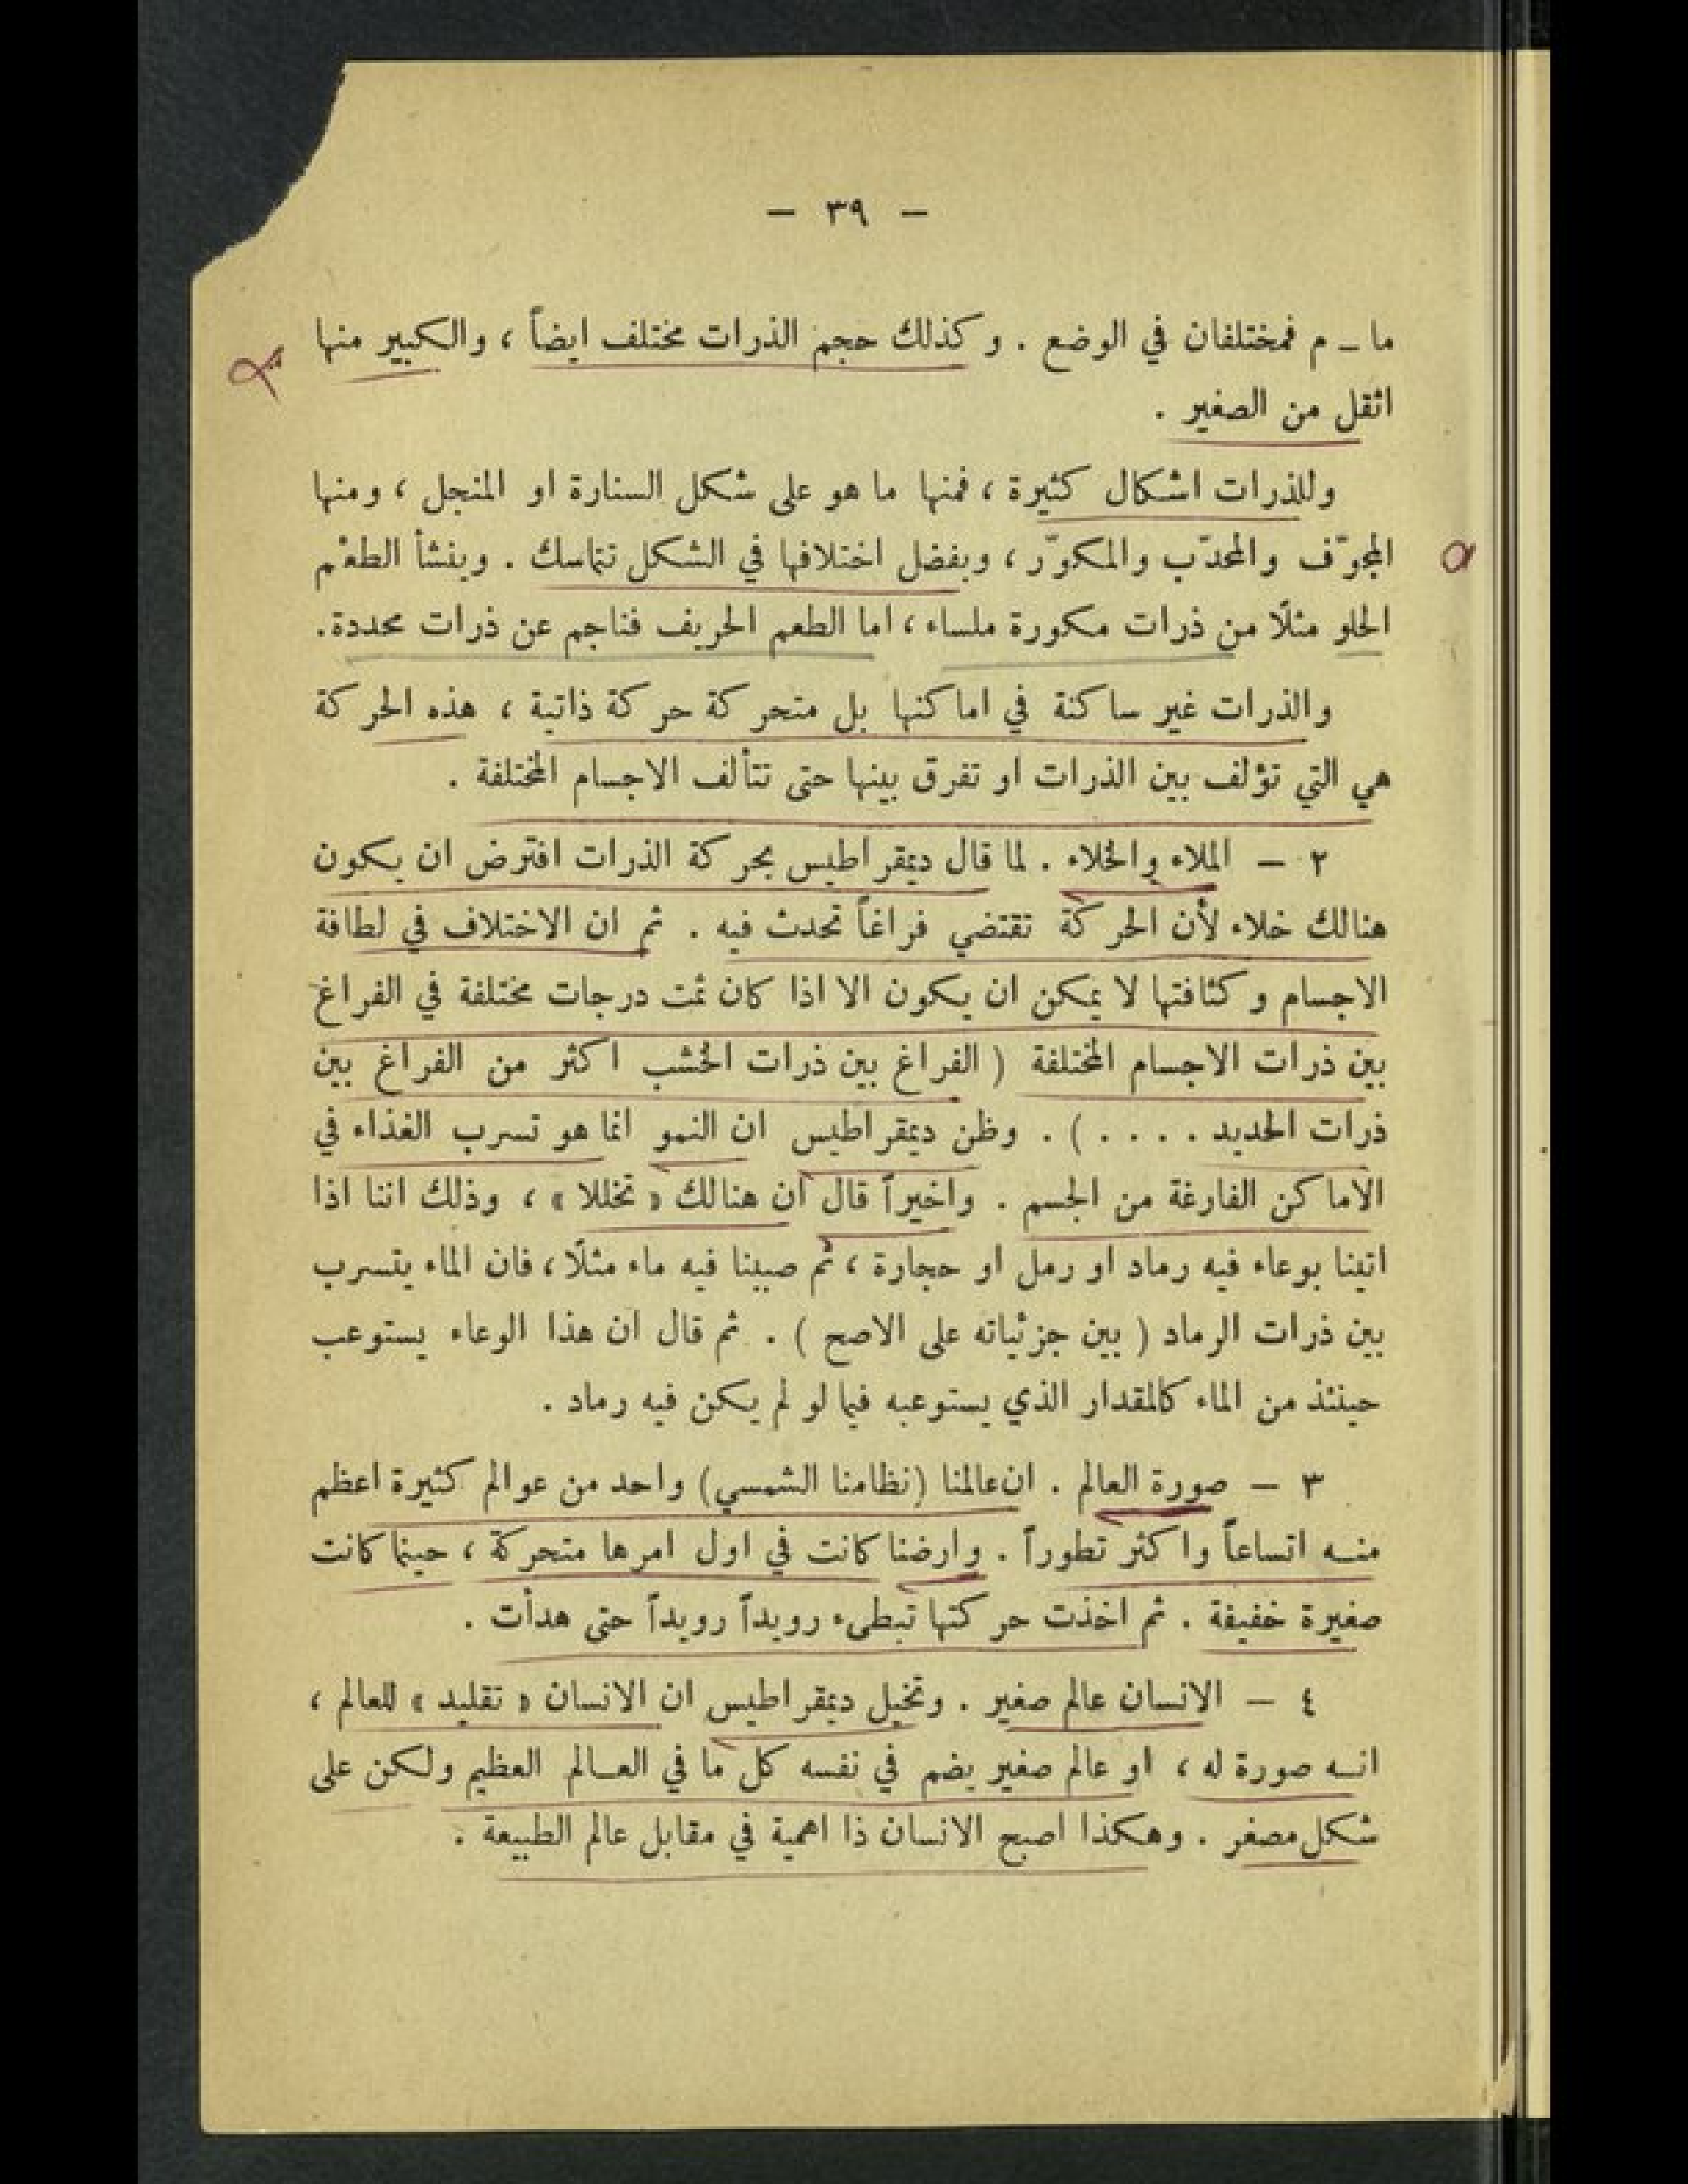 — ٣٩ —
ما ـ م فمختلفان في الوضع . وكذلك حجم الذرات مختلف ايضاً ، والكبير منها
اثقل من الصغير .
وللذرات اشكال كثيرة ، فمنها ما هو على شكل السنارة او المنجل ، ومنها
المجوّف والمحدّب والمكوّر ، وبفضل اختلافها في الشكل تتماسك . وينشأ الطعْم
الحلو مثلًا من ذرات مكورة ملساء ، اما الطعم الحريف فناجم عن ذرات محددة .
والذرات غير ساكنة في اماكنها بل متحركة حركة ذاتية ، هذه الحركة
هي التي تؤلف بين الذرات او تفرق بينها حتى تتألف الاجسام المختلفة .
٢ — الملاء والخلاء . لما قال ديمقراطيس بحركة الذرات افترض ان يكون
هنالك خلاء لأن الحركة تقتضي فراغاً تحدث فيه . ثم ان الاختلاف في لطافة
الاجسام وكثافتها لا يمكن ان يكون الا اذا كان ثمت درجات مختلفة في الفراغ
بين ذرات الاجسام المختلفة ( الفراغ بين ذرات الخشب اكثر من الفراغ بين
ذرات الحديد . . . . ) . وظن ديمقراطيس ان النمو انما هو تسرب الغذاء في
الاماكن الفارغة من الجسم . واخيراً قال ان هنالك « تخللا » ، وذلك اننا اذا
اتينا بوعاء فيه رماد او رمل او حجارة ، ثم صببنا فيه ماء مثلًا ، فان الماء يتسرب
بين ذرات الرماد ( بين جزئياته على الاصح ) . ثم قال ان هذا الوعاء يستوعب
حينئذ من الماء كالمقدار الذي يستوعبه فيما لو لم يكن فيه رماد .
٣ — صورة العالم . ان عالمنا (نظامنا الشمسي) واحد من عوالم كثيرة اعظم
منـه اتساعاً واكثر تطوراً . وارضنا كانت في اول امرها متحركة ، حينما كانت
صغيرة خفيفة . ثم اخذت حركتها تبطىء رويداً رويداً حتى هدأت .
٤ — الانسان عالم صغير . وتخيل ديمقراطيس ان الانسان « تقليد » للعالم ،
انـه صورة له ، او عالم صغير يضم في نفسه كل ما في العـالم العظيم ولكن على
شكل مصغر . وهكذا اصبح الانسان ذا اهمية في مقابل عالم الطبيعة .